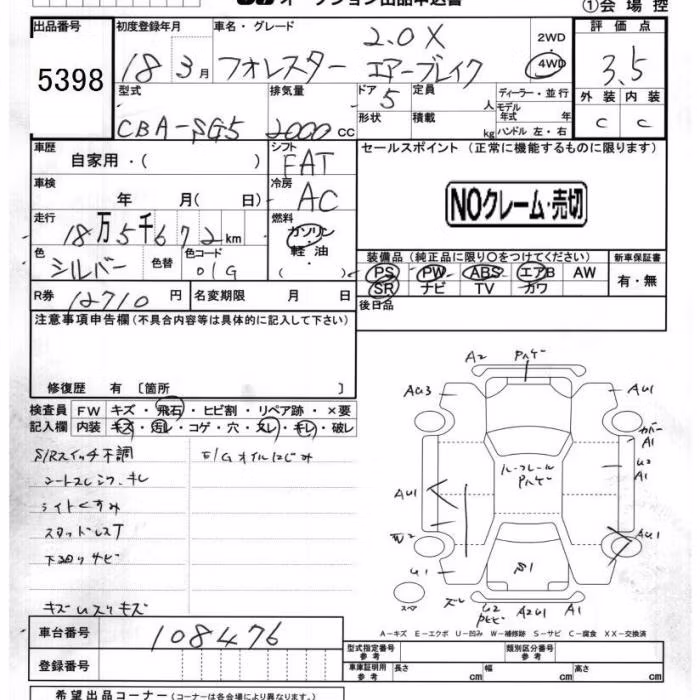 オークション出品申込書 ①会場控
出品番号 5398
初度登録年月 18 3月
車名・グレード 2.0X
フォレスター エアーブレイク
2WD 4WD
評価点 3.5
外装 内装
C C
型式 CBA-SG5
排気量 2000cc
ドア 5
形状
定員 人
積載 kg
ディーラー・並行
モデル年式 年
ハンドル 左・右
車歴 自家用・( )
シフト FAT
車検 年 月( 日)
冷房 AC
走行 18万5千672km
燃料 ガソリン・軽油 ( )
色 シルバー
色替
色コード 01G
R券 12710円
名変期限 月 日
セールスポイント(正常に機能するものに限ります)
NOクレーム・売切
装備品(純正品に限り○をつけてください)
新車保証書
PS PW ABS エアB AW
SR ナビ TV カワ
有・無
後日品
注意事項申告欄(不具合内容等は具体的に記入して下さい)
修復歴 有〔箇所 〕
検査員記入欄
FW キズ・飛石・ヒビ割・リペア跡・×要
内装 キズ・汚レ・コゲ・穴・スレ・キレ・破レ
S/Rスイッチ不調
E/Gオイルにじみ
シートスレ シワ、キレ
ライトくすみ
スタッドレスT
下廻りサビ
A2
AU3
AU1
カバー
A1
U2
A1
AU1
ルーフレール
W2
AU1
U1
S1
スペア
U2
A2U1
A1
A−キズ E−エクボ U−凹み W−補修跡 S−サビ C−腐食 XX−交換済
車台番号 108476
登録番号
型式指定番号 参考
類別区分番号 参考
車庫証明用 参考 長さ cm 幅 cm 高さ cm
希望出品コーナー(コーナーは各会場により異なります。)